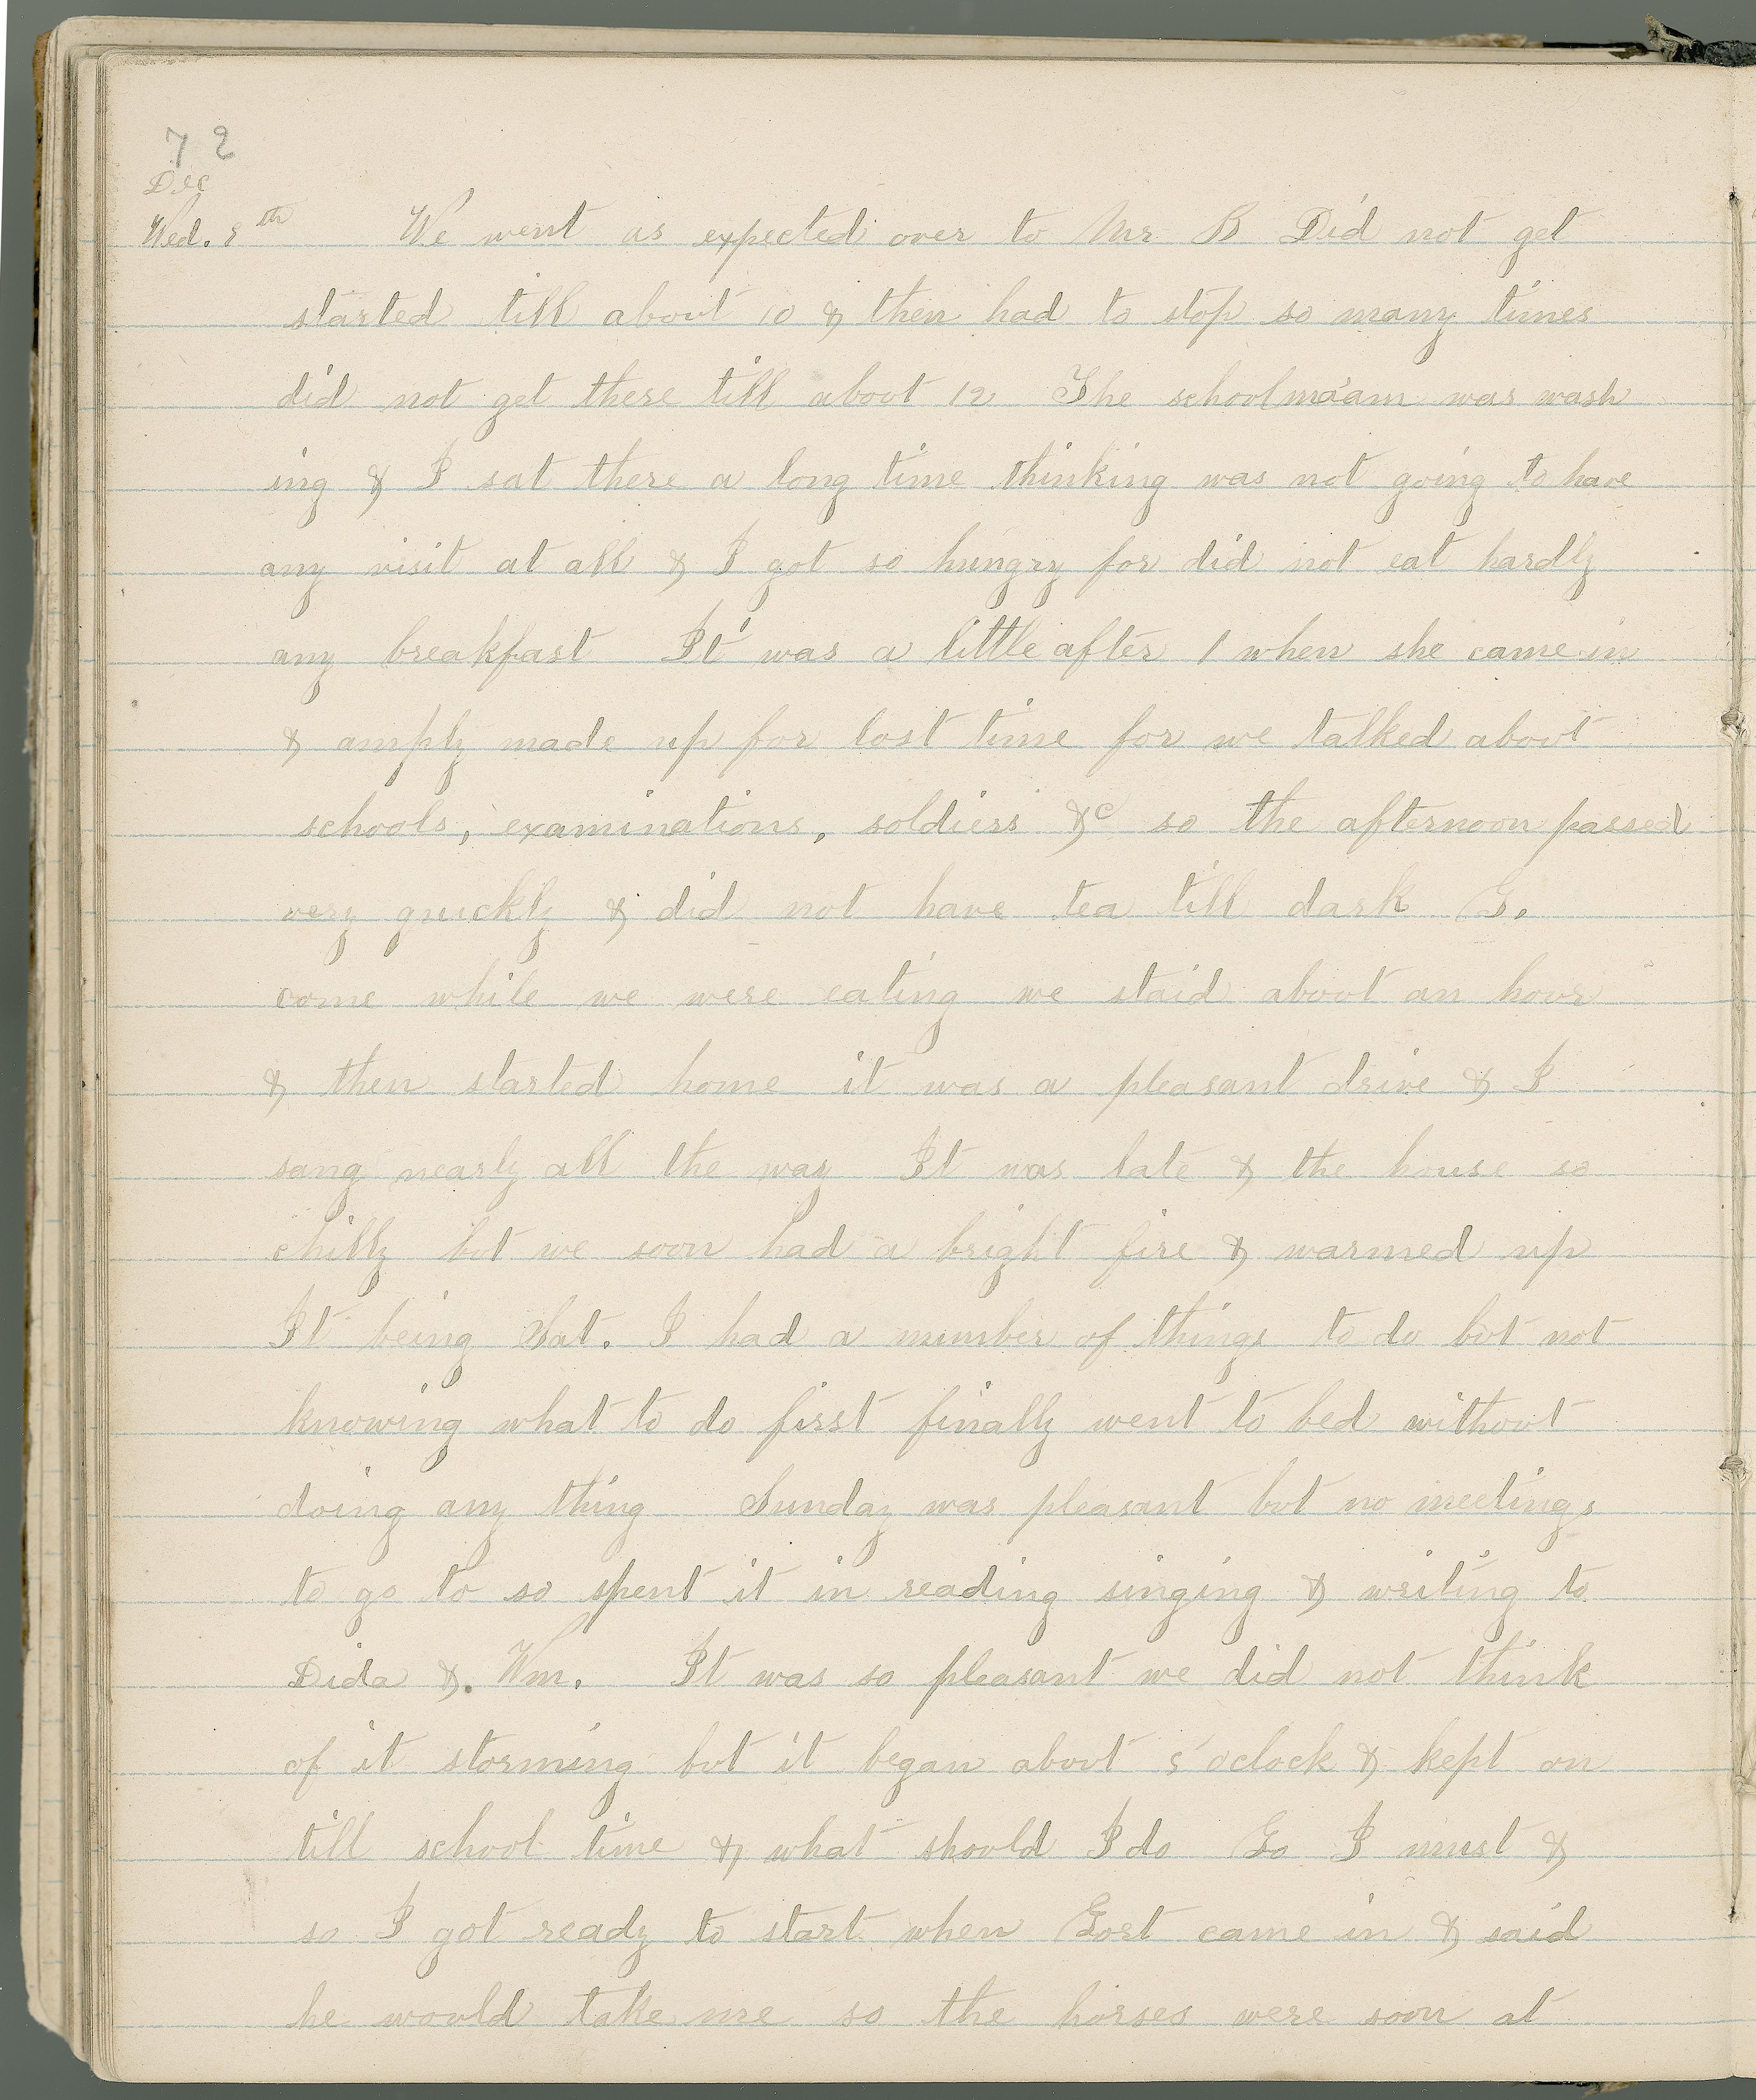 72
Dec
Wed. 8th We went as expected over to Mr B Did not get
started till about 10 & then had to stop so many times
did not get there till about 12 The schoolma'am was wash
ing & I sat there a long time thinking was not going to have
any visit at all & I got so hungry for did not eat hardly
any breakfast It was a little after 1 when she came in
& amply made up for lost time for we talked about
schools, examinations, soldiers &c so the afternoon passed
very quickly & did not have tea till dark G.
come while we were eating we staid about an hour
& then started home it was a pleasant drive & I
sang nearly all the way It was late & the house so
chilly but we soon had a bright fire & warmed up
It being Sat. I had a number of things to do but not
knowing what to do first finally went to bed without
doing any thing Sunday was pleasant but no meetings
to go to so spent it in reading singing & writing to
Dida & Wm. It was so pleasant we did not think
of it storming but it began about 5 oclock & kept on
till school time & what should I do Go I must &
so I got ready to start when Gort came in & said
he would take me so the horses were soon at